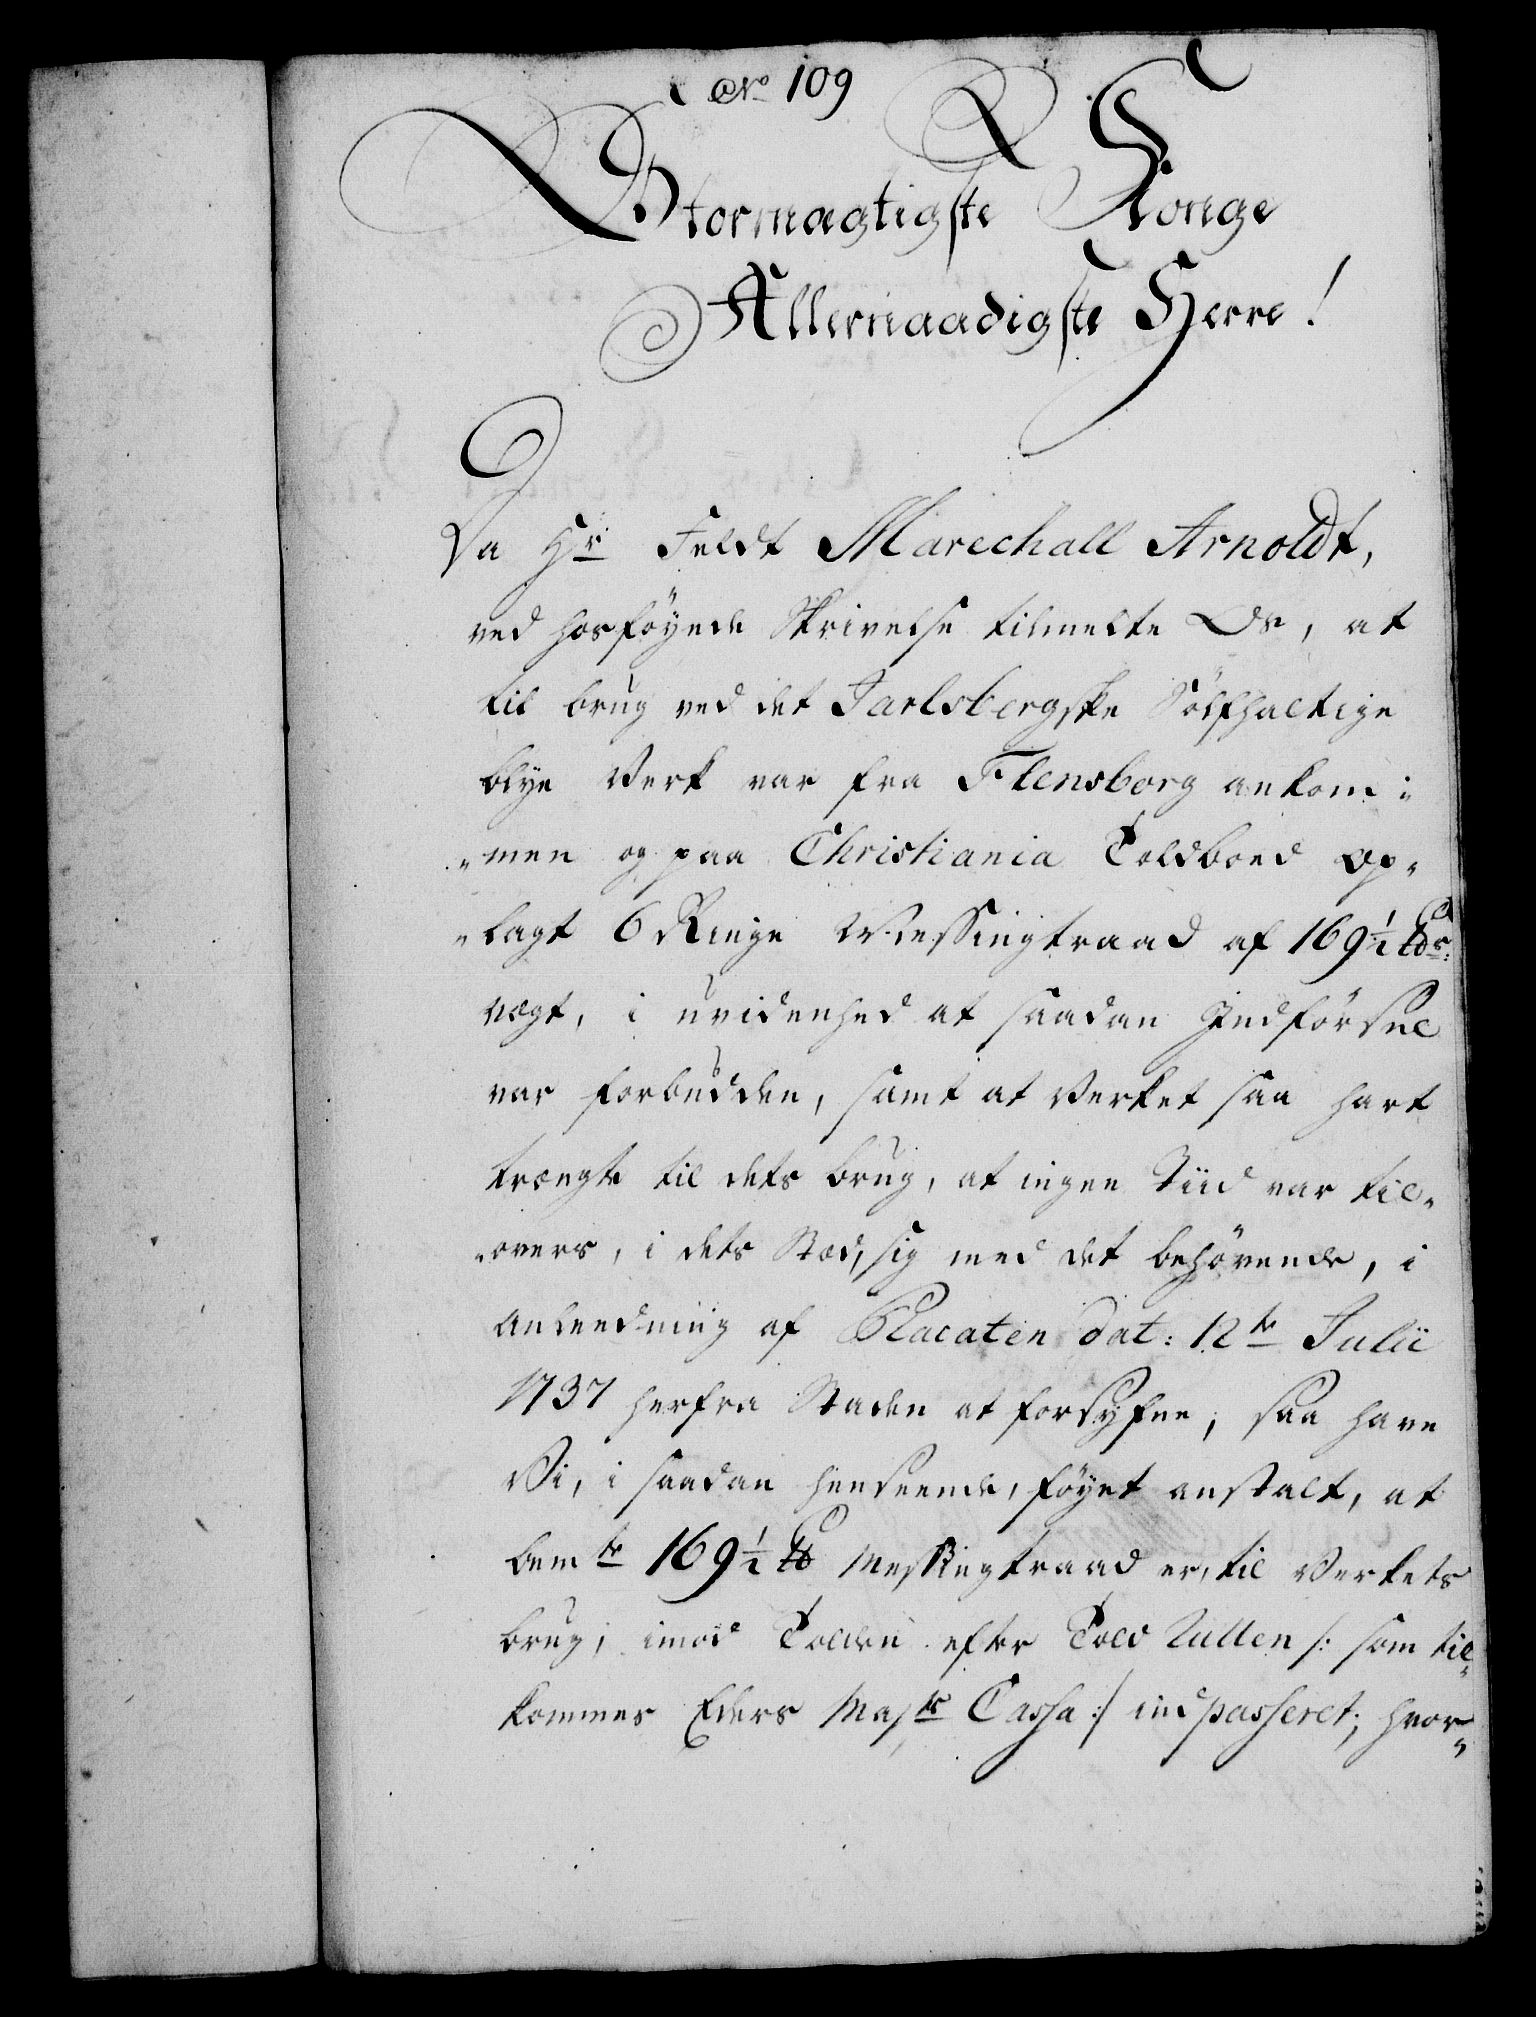 No 109
Stormægtigste Konge
Allernaadigste Herre!
Da Hr Feldt Marechall Arnoldt,
ved hosföyede Skrivelse tilmelte Os, at
til brug ved det Jarlsbergske Sölfhaltige
blye Verk var fra Flensborg ankom:
"men og paa Christiania Toldboed op"
"lagt 6 Ringe Messingtraad af 169½ ℔r:
vægt, i uvidenhed at saadan Indförsel
var forbudden, samt at Verket saa hart
trængte til dets brug, at ingen Tiid var til"
"overs, i dets Sted, sig med det behövende, i
anleedning af Placaten dat: 12te Julii
1737 herfra Staden at forsyfne, saa have
Vi, i saadan henseende, föyet anstalt, at
bemte 169½ ℔ Messingtraad er, til Verkets
brug, imod Tolden efter Told Rullen /: som til"
kommer Eders Majts Cassa :/ indpasseret; hvor"